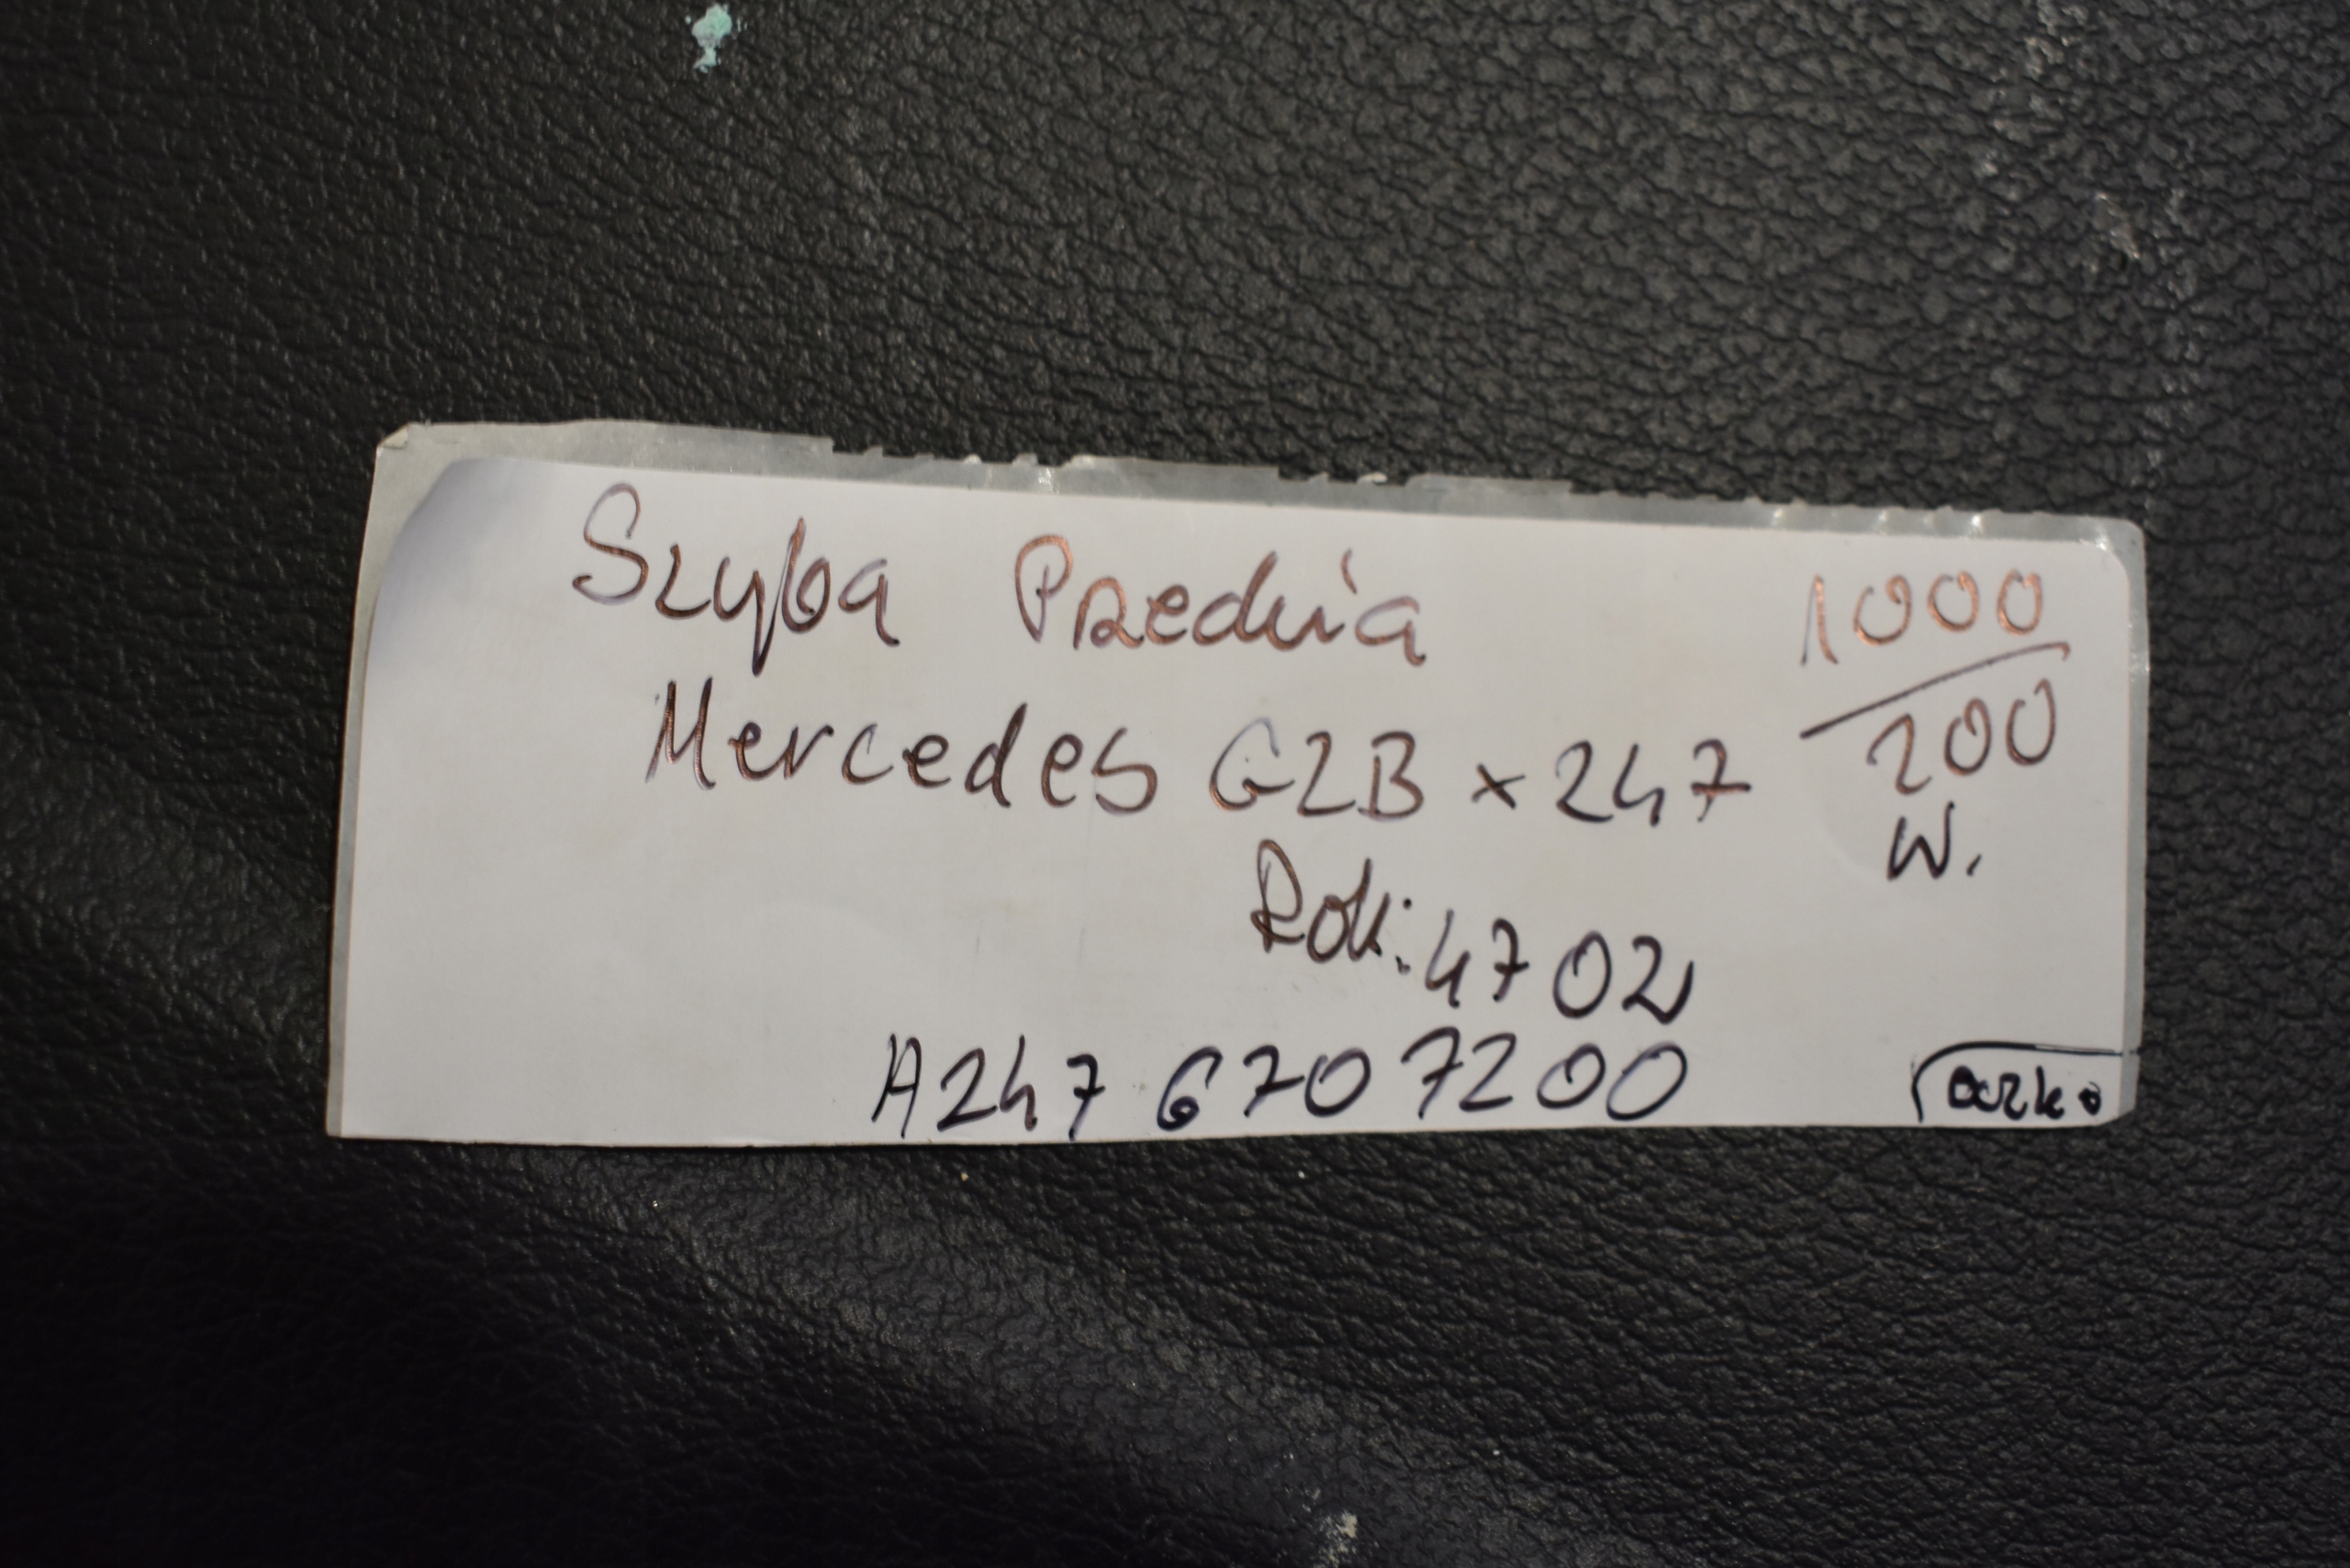 Szyba Przednia
Mercedes GLB x247
Rok: 4702
A247 670 7200
1000
200
W.
oczko